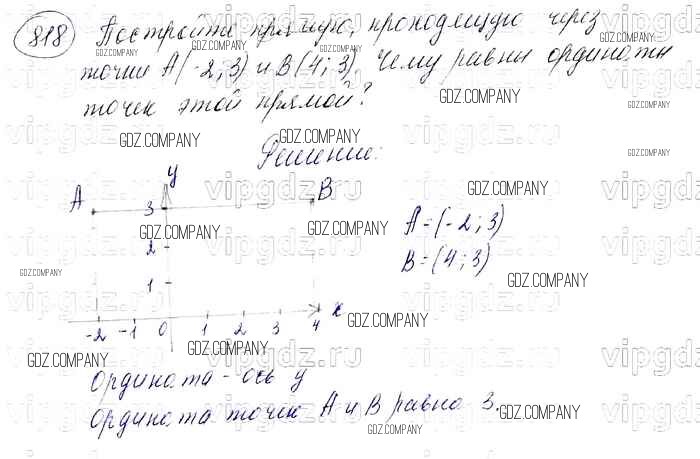 818 Постройте прямую, проходящую через
точки A(-2; 3) и B(4; 3). Чему равны ординаты
точек этой прямой?
Решение:
y
A 3 B
A = (-2; 3)
2
B = (4; 3)
1
x
-2 -1 0 1 2 3 4
Ордината - ось y
Ордината точек A и B равна 3.
GDZ.COMPANY
vipgdz.ru